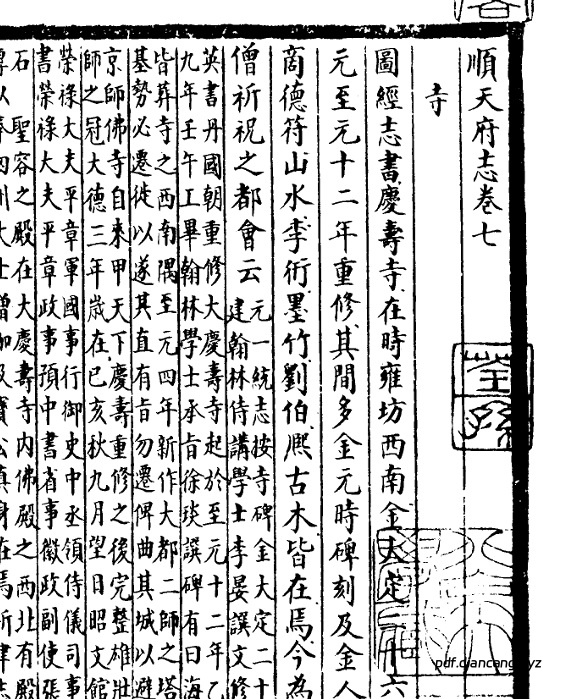 順天府志卷七
寺
圖經志書慶壽寺在時雍坊西南金大定二十六
元至元十二年重修其間多金元時碑刻及金人
商德符山水李衎墨竹劉伯熈古木皆在焉今為
僧祈祝之都會云
元一統志按寺碑金大定二十
建翰林侍講學士李晏譔文修
英書丹國朝重修大慶壽寺起於至元十二年乙
九年壬午工畢翰林學士承旨徐琰譔碑有曰海
皆葬寺之西南隅至元四年新作大都二師之塔
基勢必遷徙以遂其直有旨勿遷俾曲其城以避
京師佛寺自來甲天下慶壽重修之後完整雄壯
師之冠大德三年歲在己亥秋九月望日昭文館
榮祿大夫平章軍國事行御史中丞領侍儀司事
書榮祿大夫平章政事預中書省事徽政副使張
石 聖容之殿在大慶壽寺內佛殿之西北有殿
pdf.qiancang.xyz